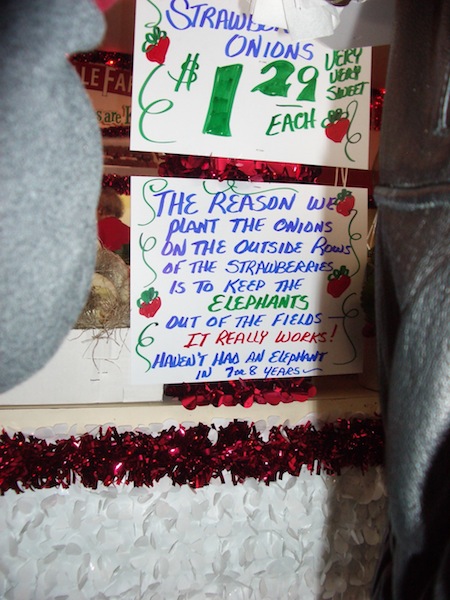 ONIONS
$1.29
EACH
VERY
VERY
SWEET
THE REASON WE
PLANT THE ONIONS
ON THE OUTSIDE ROWS
OF THE STRAWBERRIES
IS TO KEEP THE
ELEPHANTS
OUT OF THE FIELDS -
IT REALLY WORKS!
HAVEN'T HAD AN ELEPHANT
IN 7 OR 8 YEARS